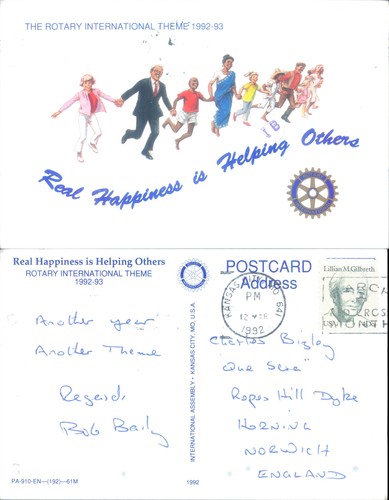 THE ROTARY INTERNATIONAL THEME 1992-93
Real Happiness is Helping Others
Real Happiness is Helping Others
ROTARY INTERNATIONAL THEME
1992-93
POSTCARD
Address
KANSAS CITY, MO 641
PM
1992
Lillian M. Gilbreth
USA
Another year
Another Theme
Regards
Bob Baily
INTERNATIONAL ASSEMBLY - KANSAS CITY MO., U.S.A.
Charles Bigley
"Que Sera"
Ropes Hill Dyke
HORNING
NORWICH
ENGLAND
PA-910-EN—(192)—61M
1992